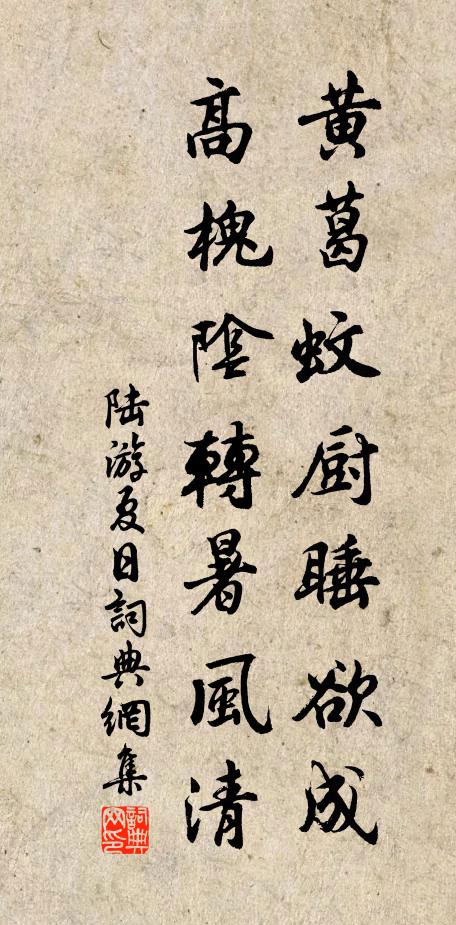 黃葛蚊厨睡欲成
高槐陰轉暑風清
陆游夏日詞典網集
詞典网印